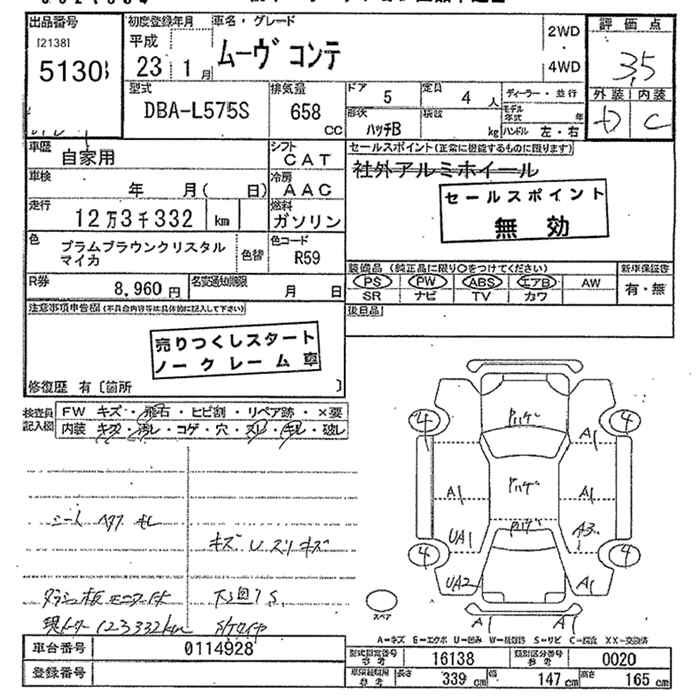 出品番号
[2138]
5130
初度登録年月
平成
23年1月
車名・グレード
ムーヴ コンテ
2WD
4WD
評価点
3.5
外装 内装
D C
型式
DBA-L575S
排気量
658
CC
ドア
5
定員
4人
形状
ハッチB
積載
kg
ディーラー・並行
モデル年式 年
ハンドル 左・右
車歴
自家用
シフト
CAT
車検
年 月( 日)
冷房
AAC
走行
12万3千332 km
燃料
ガソリン
色
プラムブラウンクリスタル
マイカ
色替
色コード
R59
R券
8,960円
名変通知期限
月 日
セールスポイント(正常に機能するものに限ります)
社外アルミホイール
セールスポイント
無効
装備品(純正品に限り○をつけてください)
PS PW ABS エアB AW
SR ナビ TV カワ
新車保証書
有・無
後日品
注意事項申告欄(不具合内容等は具体的に記入して下さい)
売りつくしスタート
ノークレーム車
修復歴 有〔箇所 〕
検査員
記入欄
FW キズ・飛石・ヒビ割・リペア跡・×要
内装 キズ・汚レ・コゲ・穴・スレ・キレ・破レ
シート ヘタリ キレ
キズ U スリキズ
ダッシュ板 モニター付
下廻りS
現メーター 123332km
4
4
4
4
A1
A1
A1
UA1
A3
UA2
A1
A1
A1
スペア
A=キズ E=エクボ U=凹み W=補修跡 S=サビ C=腐食 XX=交換済
車台番号
0114928
登録番号
型式指定番号
参考
16138
類別区分番号
参考
0020
長さ
339 cm
幅
147 cm
高さ
165 cm